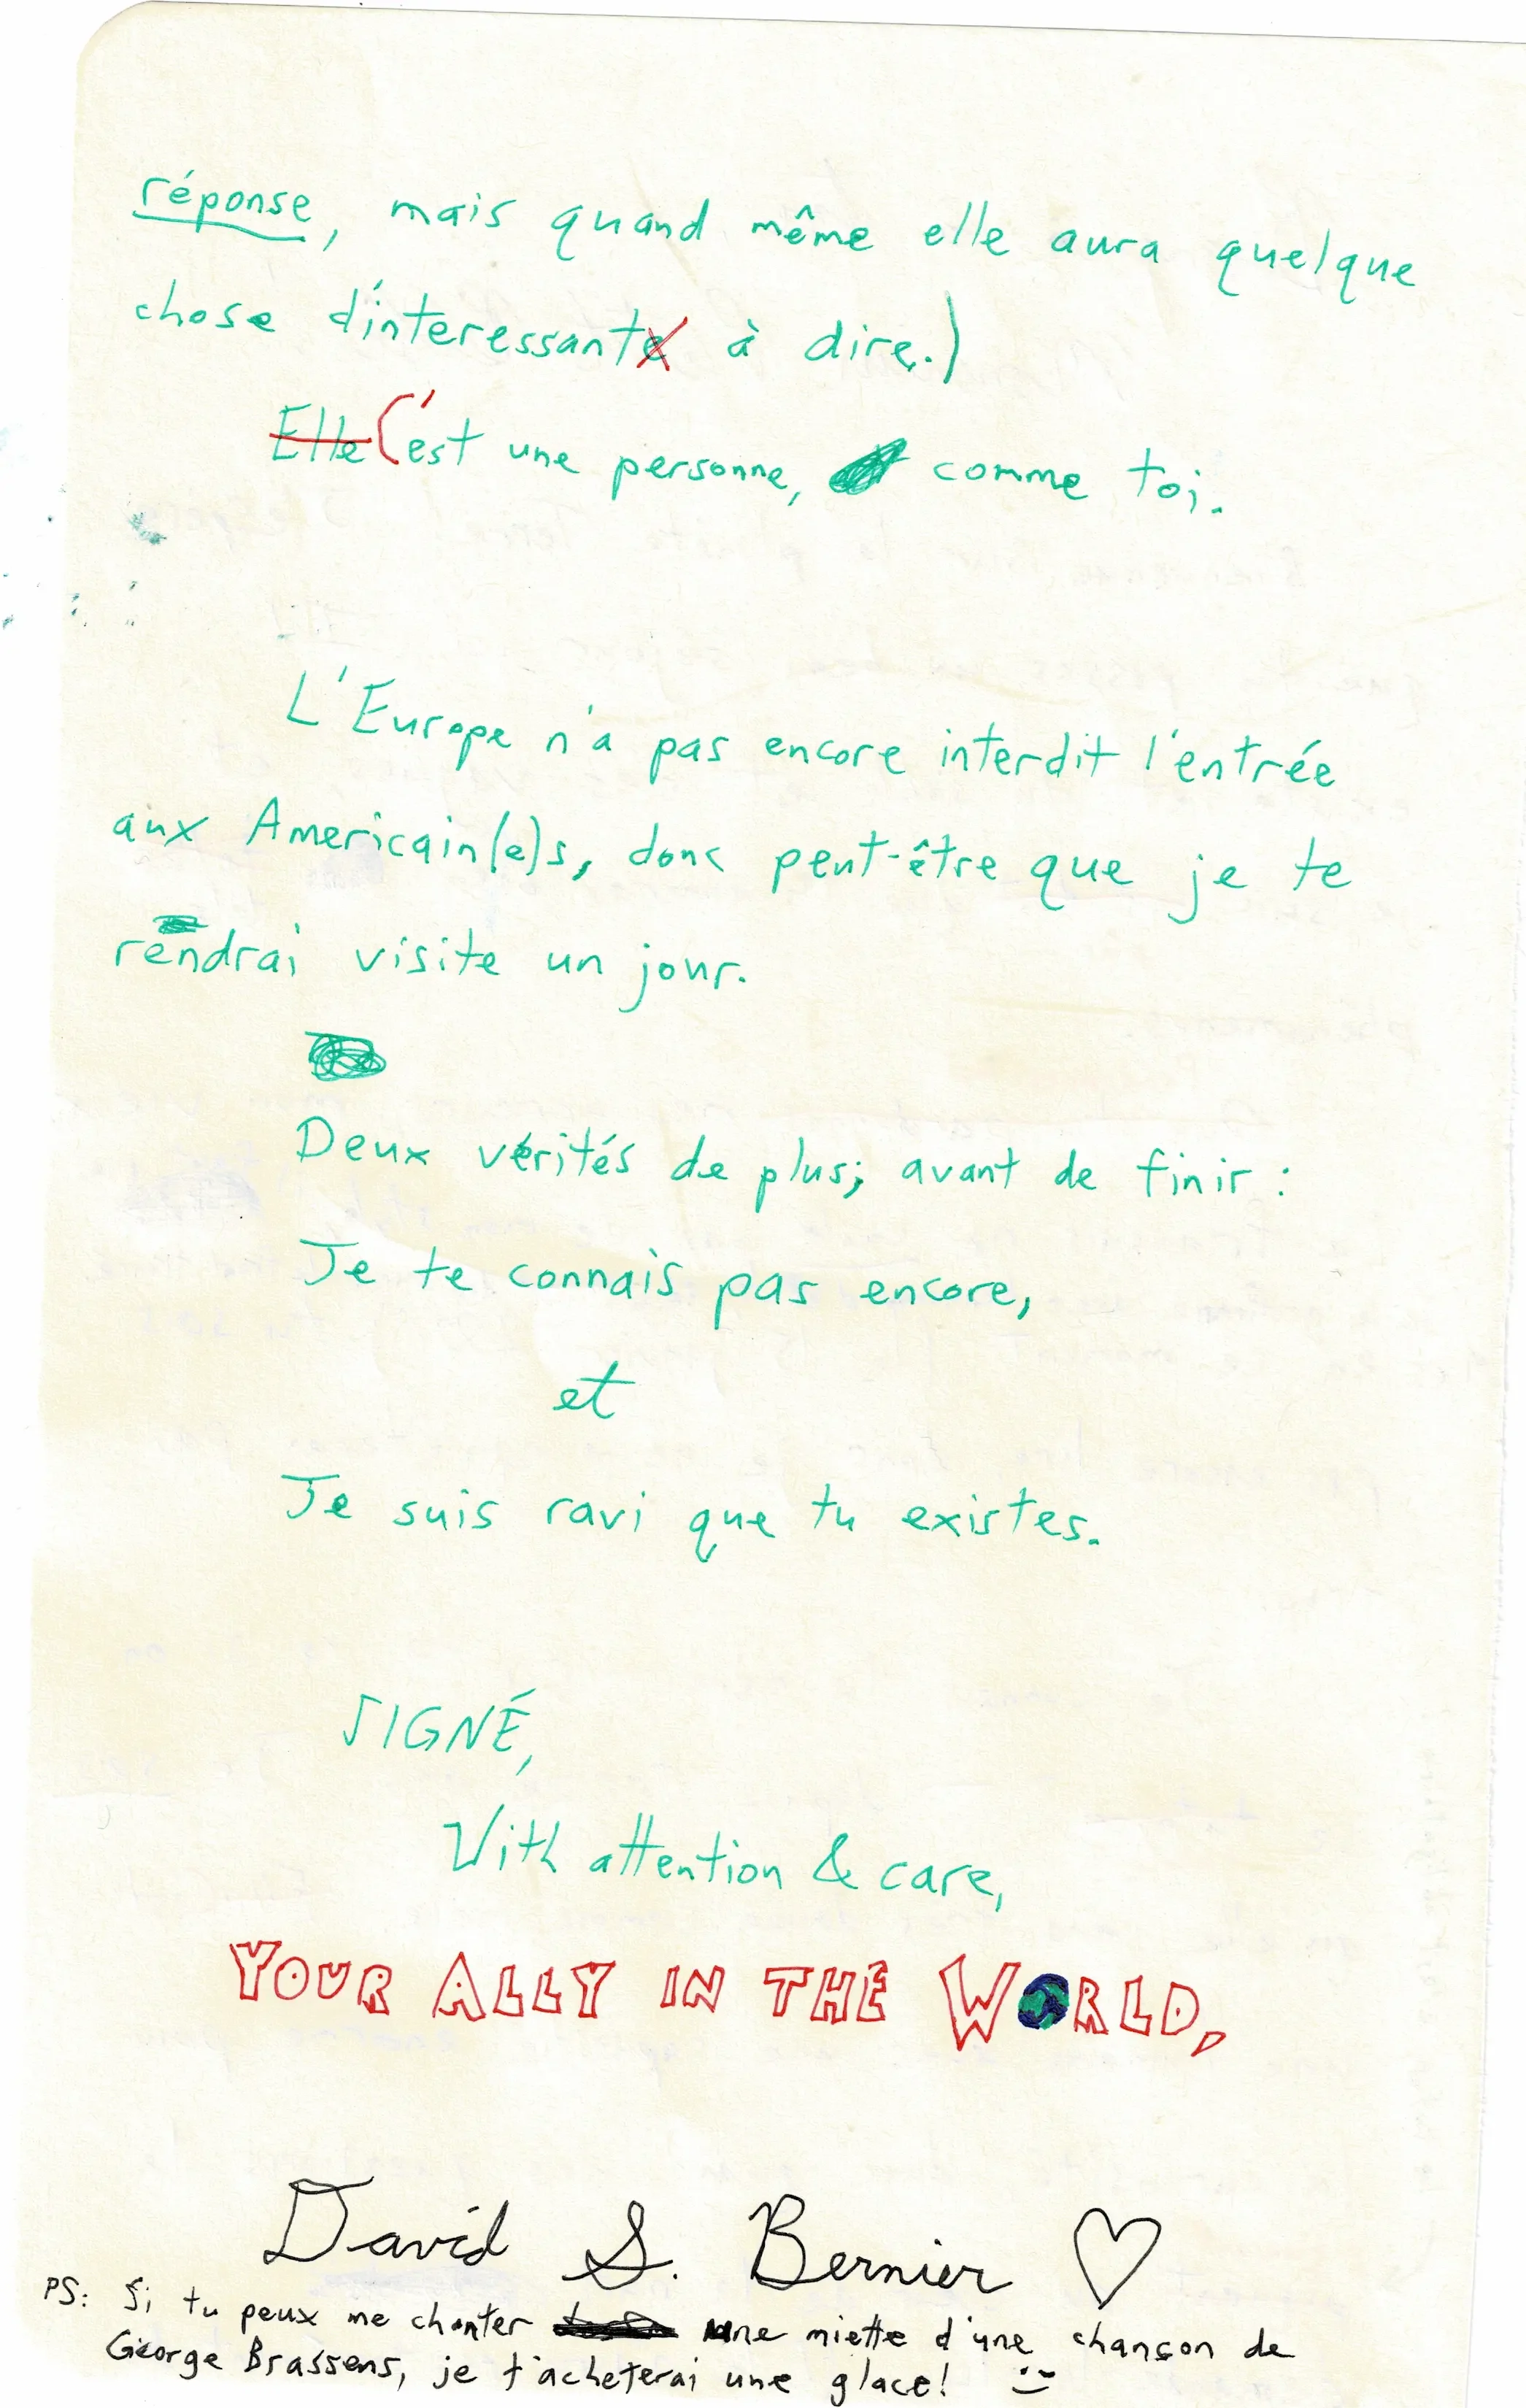 réponse, mais quand même elle aura quelque
chose d'interessant à dire.)
Elle C'est une personne, comme toi.
L'Europe n'a pas encore interdit l'entrée
aux Americain(e)s, donc peut-être que je te
rendrai visite un jour.
Deux vérités de plus; avant de finir :
Je te connais pas encore,
et
Je suis ravi que tu existes.
SIGNÉ,
With attention & care,
YOUR ALLY IN THE WORLD,
David S. Bernier ♡
PS: Si tu peux me chanter une miette d'une chançon de
George Brassens, je t'acheterai une glace!